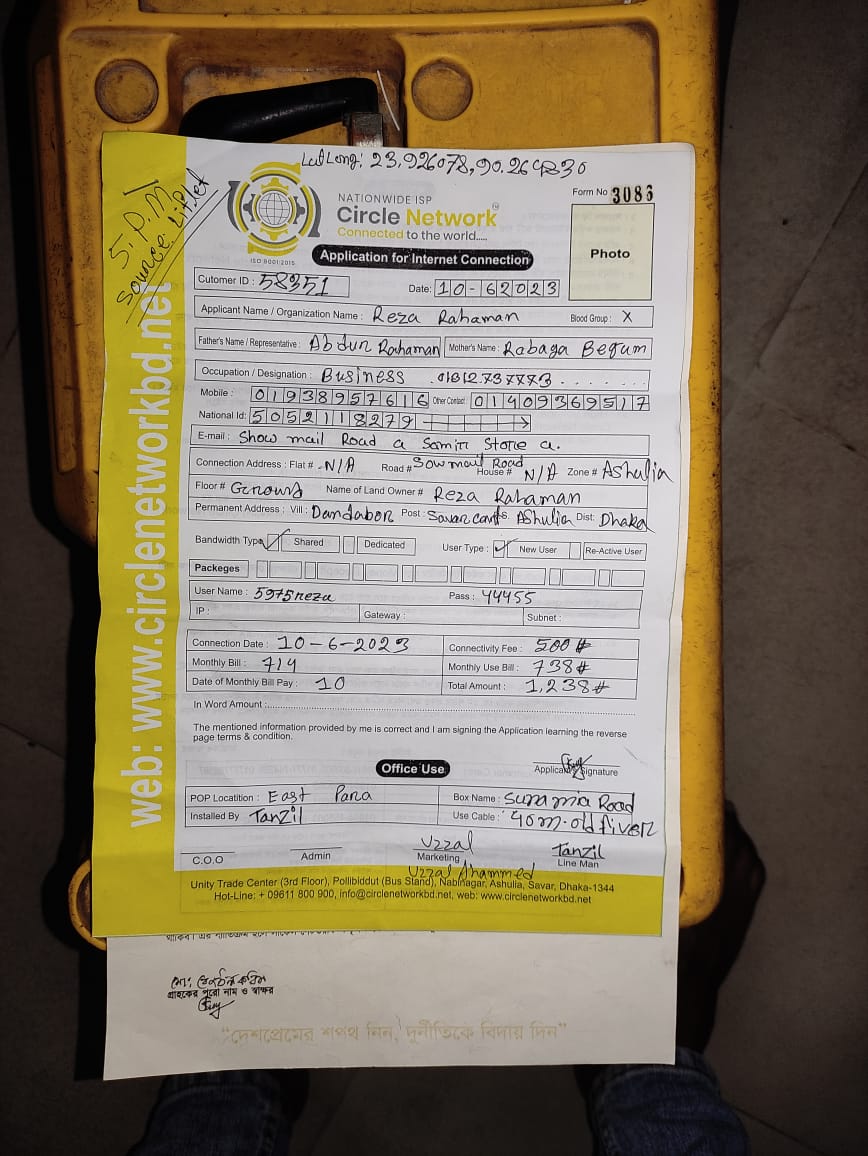 Lat Long: 23.926078, 90.26
S.P.M
Source: Liflet
NATIONWIDE ISP
Circle Network
Connected to the world.....
ISO 9001:2015
Form No 3086
Photo
Application for Internet Connection
Cutomer ID : 58351
Date: 10-62023
Applicant Name / Organization Name : Reza Rahaman Blood Group : X
Father's Name / Representative : Abdur Rahaman Mother's Name : Rabaga Begum
Occupation / Designation : Business 01312737773
Mobile : 01938957616 Other Contact 01409369517
National Id: 5052118279
E-mail : Show mail Road a Samiti Store a.
Connection Address : Flat # N/A Road # Sowmail Road House # N/A Zone # Ashulia
Floor # Ground Name of Land Owner # Reza Rahaman
Permanent Address : Vill : Dandabor Post : Savar cantt Ashulia Dist: Dhaka
Bandwidth Type Shared Dedicated User Type : New User Re-Active User
Packeges
User Name : 5975reza Pass : 44455
IP : Gateway : Subnet :
Connection Date : 10-6-2023 Connectivity Fee : 500#
Monthly Bill : 714 Monthly Use Bill : 738#
Date of Monthly Bill Pay : 10 Total Amount : 1,238#
In Word Amount :
The mentioned information provided by me is correct and I am signing the Application learning the reverse
page terms & condition.
Applicant Signature
Office Use
POP Locatition : East Para Box Name : Sura mia Road
Installed By Tanzil Use Cable : 40m. old fiver
Uzzal Tanzil
C.O.O Admin Marketing Line Man
Uzzal Ahammed
Unity Trade Center (3rd Floor), Pollibiddut (Bus Stand), Nabinagar, Ashulia, Savar, Dhaka-1344
Hot-Line: + 09611 800 900, info@circlenetworkbd.net, web: www.circlenetworkbd.net
web: www.circlenetworkbd.net
গ্রাহকের পুরো নাম ও স্বাক্ষর
“দেশপ্রেমের শপথ নিন, দুর্নীতিকে বিদায় দিন”